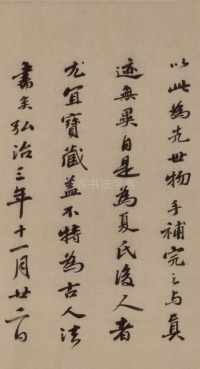 以此為先世物手補完之與真
迹無異自是為夏氏後人者
尤宜寶藏蓋不特為古人法
書矣弘治三年十一月廿二日